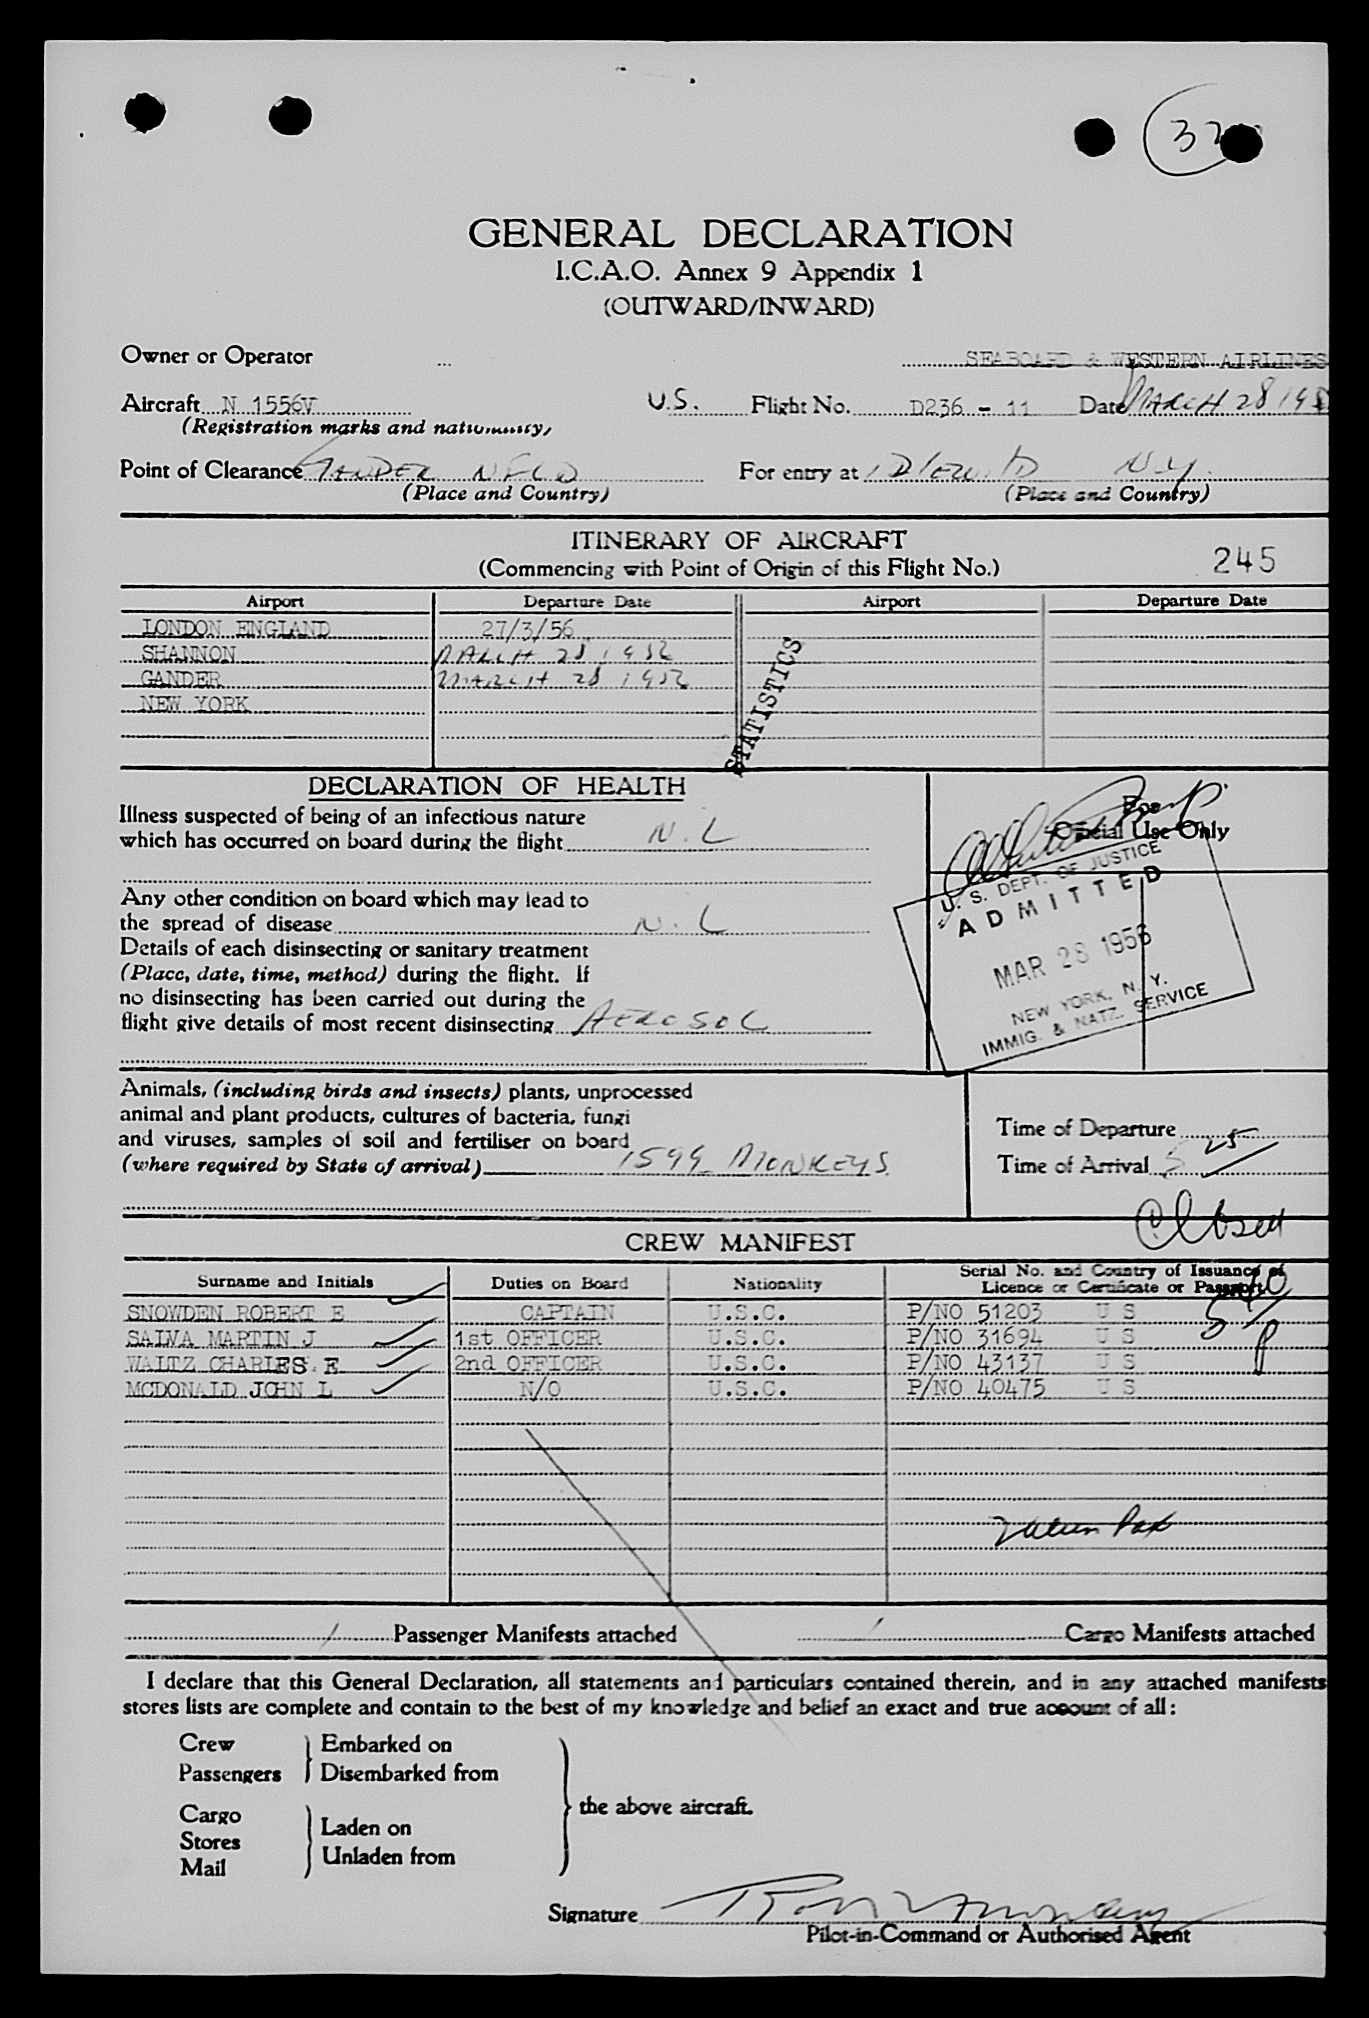 32
GENERAL DECLARATION
I.C.A.O. Annex 9 Appendix 1
(OUTWARD/INWARD)
Owner or Operator ... SEABOARD & WESTERN AIRLINES
Aircraft N 1556V U.S. Flight No. D236 - 11 Date MARCH 28 195
(Registration marks and nationality)
Point of Clearance GANDER NFLD For entry at IDLEWILD N.Y.
(Place and Country) (Place and Country)
ITINERARY OF AIRCRAFT
(Commencing with Point of Origin of this Flight No.) 245
Airport Departure Date Airport Departure Date
LONDON ENGLAND 27/3/56
SHANNON MARCH 28 1956
GANDER MARCH 28 1956
NEW YORK
STATISTICS
DECLARATION OF HEALTH
Illness suspected of being of an infectious nature
which has occurred on board during the flight N.L
Any other condition on board which may lead to
the spread of disease N.L
Details of each disinsecting or sanitary treatment
(Place, date, time, method) during the flight. If
no disinsecting has been carried out during the
flight give details of most recent disinsecting AEROSOL
For
Official Use Only
U. S. DEPT. OF JUSTICE
ADMITTED
MAR 28 1956
NEW YORK, N. Y.
IMMIG. & NATZ. SERVICE
Animals, (including birds and insects) plants, unprocessed
animal and plant products, cultures of bacteria, fungi
and viruses, samples of soil and fertiliser on board
(where required by State of arrival) 1599 MONKEYS
Time of Departure 25
Time of Arrival
Closed
CREW MANIFEST
Surname and Initials Duties on Board Nationality Serial No. and Country of Issuance of
Licence or Certificate or Passport
SNOWDEN ROBERT E CAPTAIN U.S.C. P/NO 51203 U S
SALVA MARTIN J 1st OFFICER U.S.C. P/NO 31694 U S
WALTZ CHARLES E 2nd OFFICER U.S.C. P/NO 43137 U S
MCDONALD JOHN L N/O U.S.C. P/NO 40475 U S
Pax
1 Passenger Manifests attached 1 Cargo Manifests attached
I declare that this General Declaration, all statements and particulars contained therein, and in any attached manifests
stores lists are complete and contain to the best of my knowledge and belief an exact and true account of all:
Crew Embarked on
Passengers Disembarked from
the above aircraft.
Cargo
Stores Laden on
Mail Unladen from
Signature
Pilot-in-Command or Authorised Agent